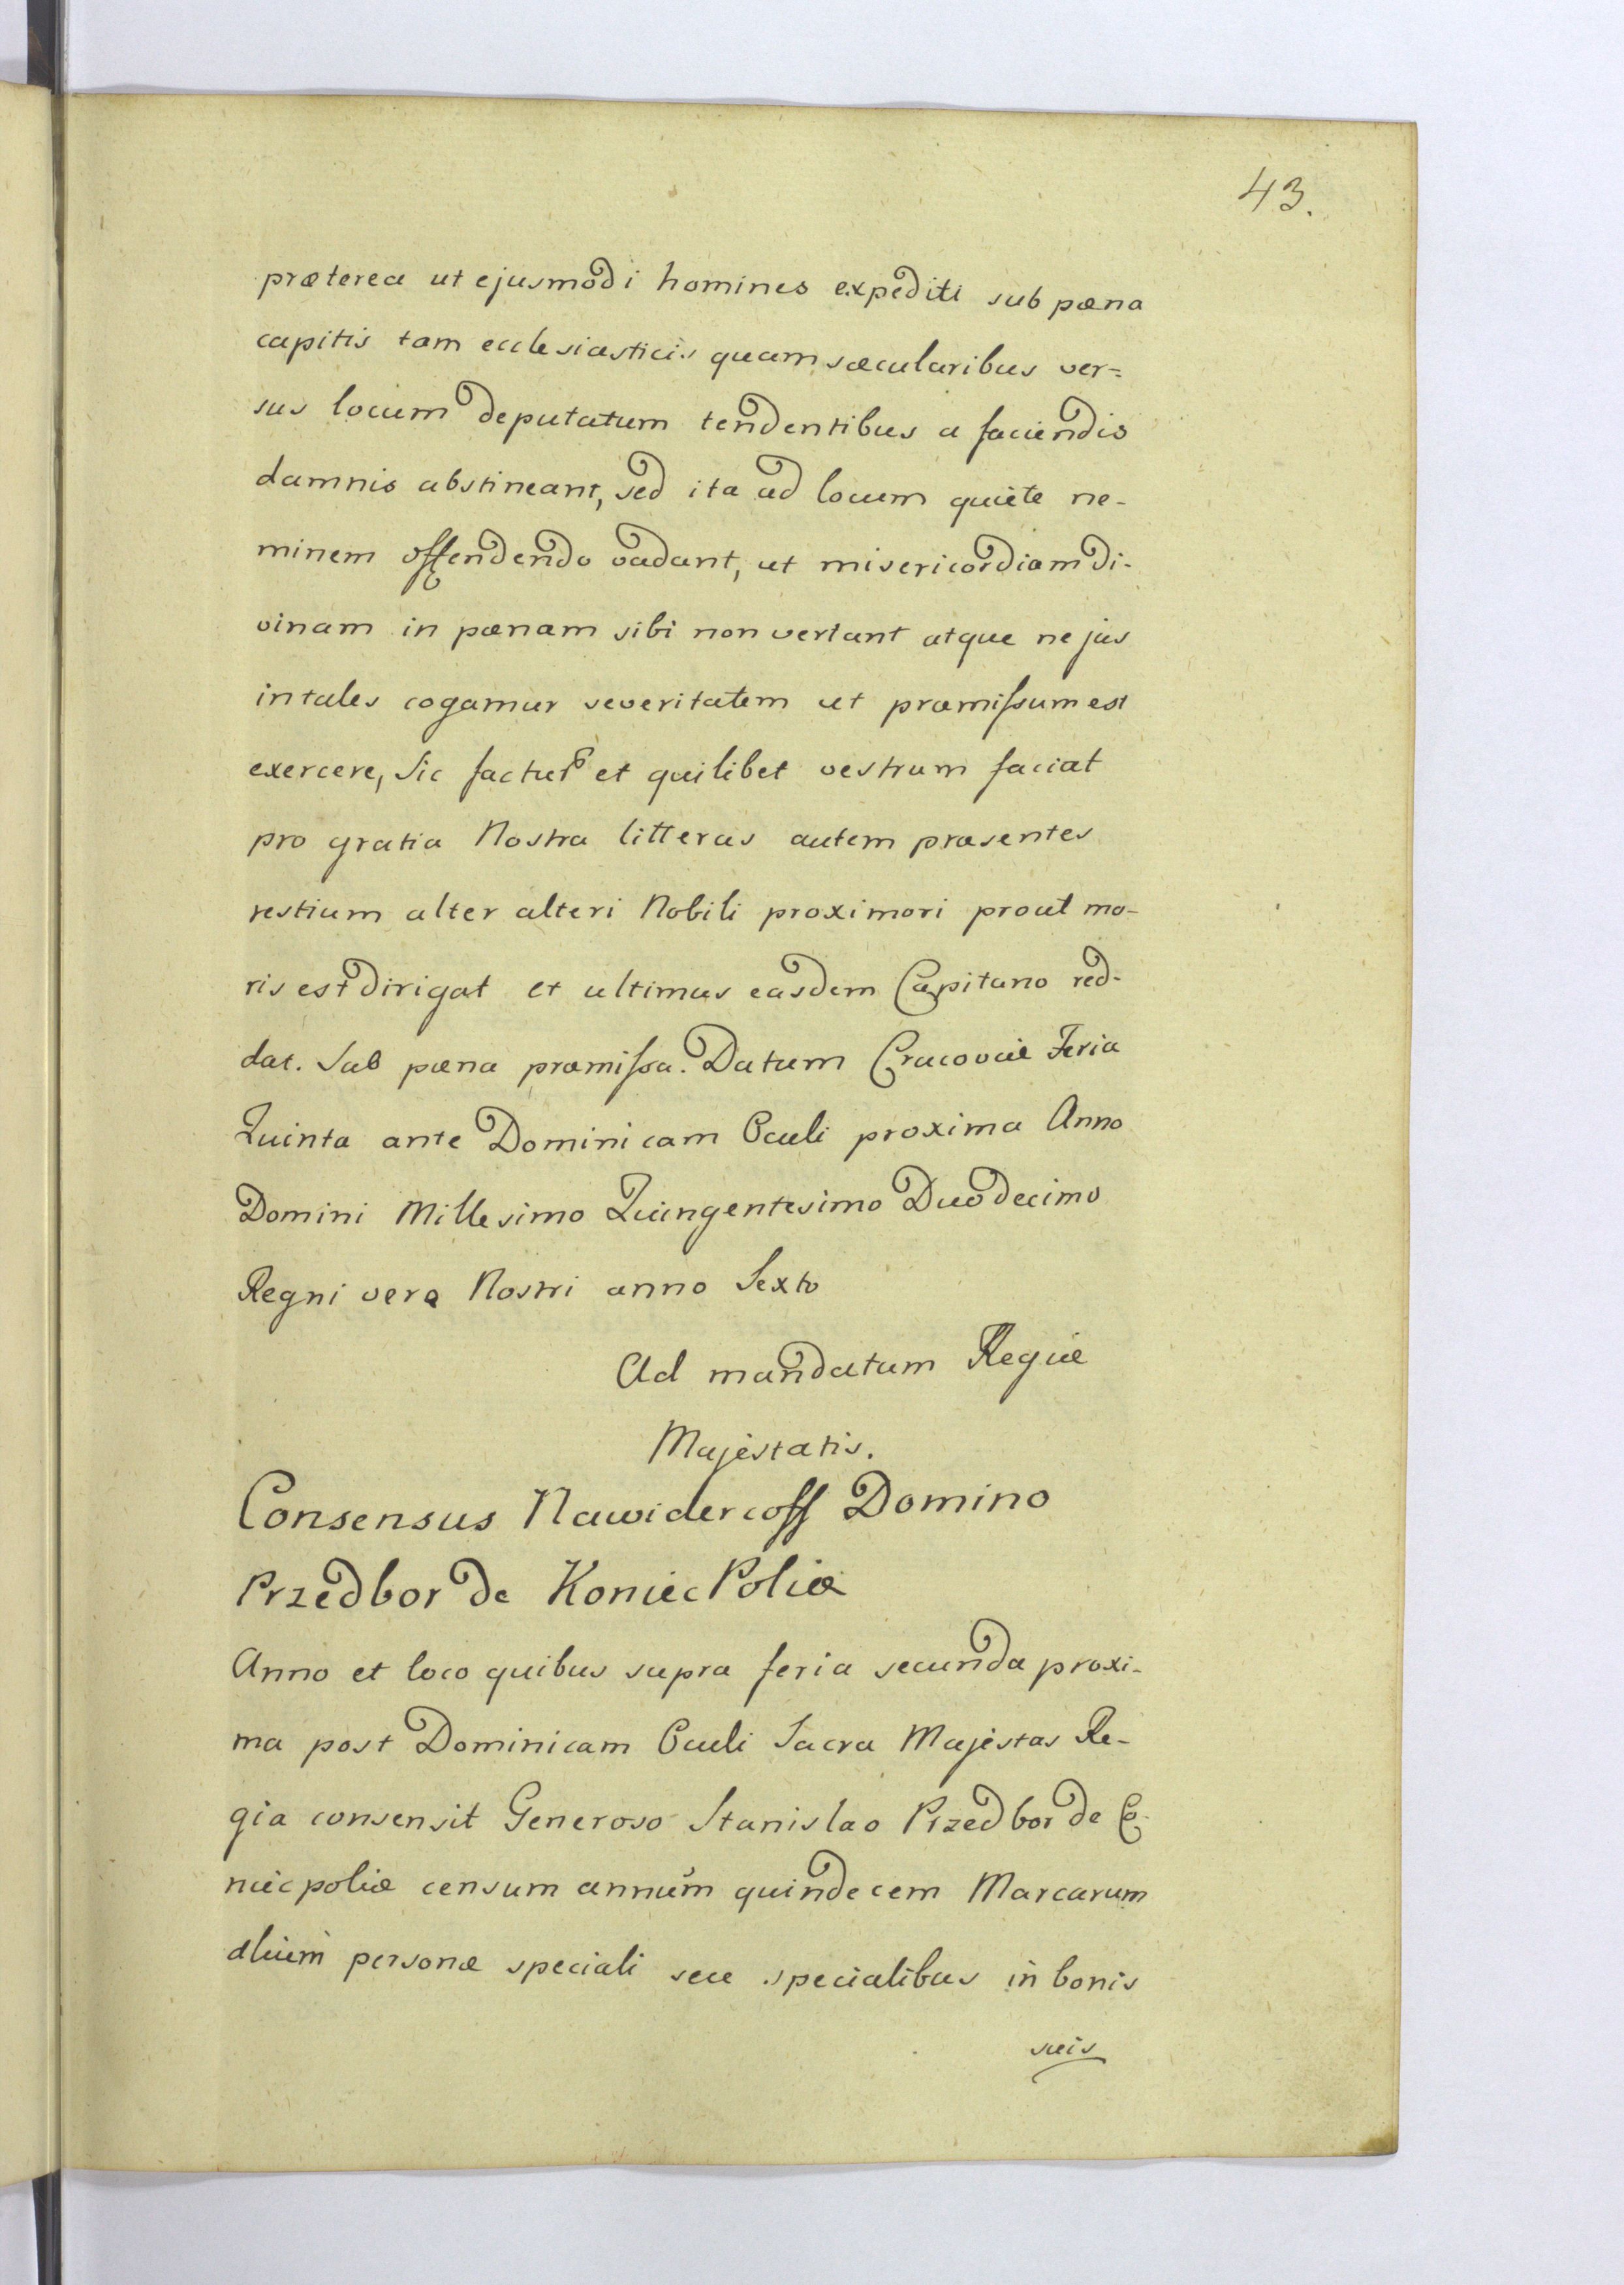 43.
præterea ut ejusmodi homines expediti sub pæna
capitis tam ecclesiasticis quam sæcularibus ver=
sus locum deputatum tendentibus a faciendis
damnis abstineant, sed ita ad locum quiete ne-
minem offendendo vadant, ut misericordiam di-
vinam in pænam sibi non vertant atque ne jus
in tales cogamur severitatem ut præmissum est
exercere, Sic factur9 et quilibet vestrum faciat
pro gratia Nostra litteras autem præsentes
restium alter alteri Nobili proximori prout mo-
ris est dirigat et ultimus easdem Capitano red-
dat. Sub pæna præmissa. Datum Cracoviæ Feria
Quinta ante Dominicam Oculi proxima Anno
Domini Millesimo Quingentesimo Duodecimo
Regni vero Nostri anno Sexto
Ad mandatum Regiæ
Majestatis.
Consensus Nawidercoff Domino
Przedbor de KoniecPoliæ
Anno et loco quibus supra feria secunda proxi-
ma post Dominicam Oculi Sacra Majestas Re-
gia consensit Generoso Stanislao Przedbor de Co-
niecpoliæ censum annum quindecem Marcarum
alium personæ speciali seu specialibus in bonis
suis